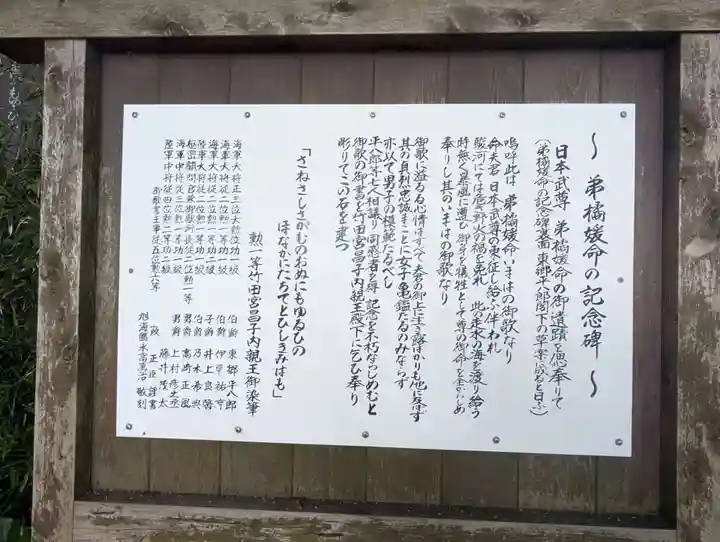 ～ 弟橘媛命の記念碑 ～
日本武尊、弟橘媛命の御遺蹟を憑奉りて
(弟橘媛命の記念碑裏面 東郷平八郎閣下の草案に成ると曰ふ)
嗚呼此は 弟橘媛命いまはの御歌なり
命夫君 日本武尊の東征し給ふに伴われ
駿河にては危き野火の禍を免れ 此の走水の海を渡り給う
時無く暴風に遭ひ 御身を犠牲として尊の御命を全からしめ
奉りし其のいまはの御歌なり
御歌に溢るる心情はすべて夫君の御上に注ぎ露ばかりも他に及ばず
其の貞烈忠誠まことに女子の亀鑑たるのみならず
亦以て男子の模範たるべし
平八郎等七人相議り同感者を得 記念を不朽ならしめむと
御歌の御書を竹田宮昌子内親王殿下に乞ひ奉り
彫りてこの石を建つ
「さねさしさがむのおぬにもゆるひの
ほなかにたちてとひしきみはも」
勲一等竹田宮昌子内親王御染筆
海軍大将正三位大勲位功一級 伯爵 東郷平八郎
海軍大将従二位勲一等功一級 伯爵 伊東祐亨
海軍大将従二位勲一等功二級 子爵 井上良馨
陸軍大将従二位勲一等功一級 伯爵 乃木希典
枢密顧問官兼御歌所長従二位勲一等 男爵 高崎正風
海軍中将従三位勲一等功一級 男爵 上村彦之丞
陸軍中将従四位勲二等功二級 藤井茂太
御歌所主事従五位勲六等 阪正臣 謹書
旭海 永高萬治 敬刻